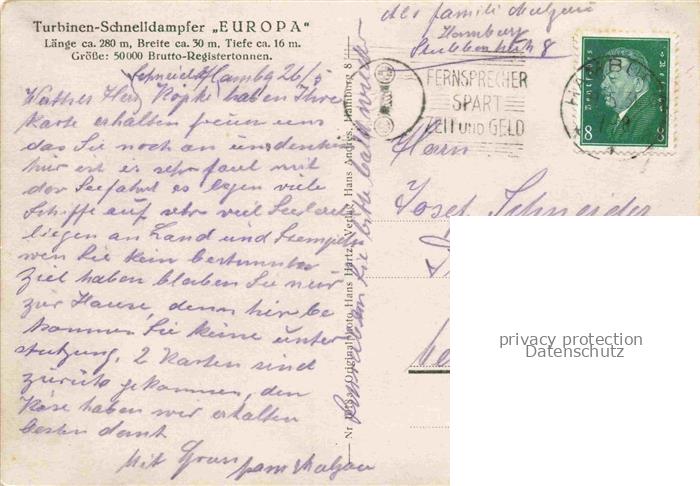 Turbinen-Schnelldampfer „EUROPA“
Länge ca. 280 m, Breite ca. 30 m, Tiefe ca. 16 m.
Größe: 50000 Brutto-Registertonnen.
Hambg 26/5
Werther Herr haben Ihre
Karte erhalten freuen uns
das Sie noch an uns denken
hir ist es sehr faul mit
der Seefahrt es legen viele
Schiffe auf sehr viel Seeleute
liegen an Land und Stempeln
wen Sie kein bestimmter
Ziel haben bleiben Sie nur
zur Hause, denn hir be
kommen Sie keine unter
stutzung. 2 Karten sind
zurück gekommen, den
Käse haben wir erhalten
besten dank
Mit Gruss
schreiben Sie bitte bald wieder
Nr. Originalphoto Hans Hartz, Verlag Hans Andres, Hamburg 8
Abs familie
Hamburg
8
FERNSPRECHER
SPART
ZEIT und GELD
HAMBURG
Deutsches Reich
8 8
Herrn
Josef Schneider
privacy protection
Datenschutz